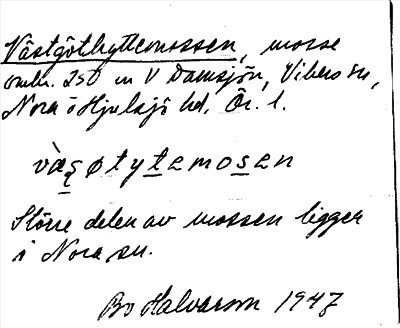 Västgöthyttemossen, mosse
omkr. 250 m V Damsjön, Vibers sn,
Nora o Hjulsjö hd, Ör. l.
vàsøtytemosen
Större delen av mossen ligger
i Nora sn.
Bo Halvarson 1947